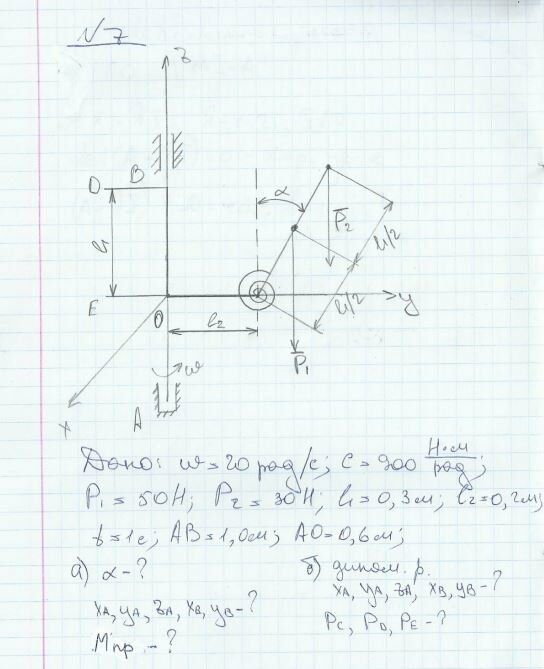 N7
z
B
D
α
P₂
l₁/2
a
E
O
l₂
l₁/2
y
P₁
ω
A
x
Дано: ω=20 рад/с; c=900 Н·см/рад;
P₁=50Н; P₂=30Н; l₁=0,3м; l₂=0,2м;
t=1с; AB=1,0м; AO=0,6м;
а) α-?
XA, YA, ZA, XB, YB-?
Mпр.-?
б) динам. р.
XA, YA, ZA, XB, YB-?
PC, PD, PE-?